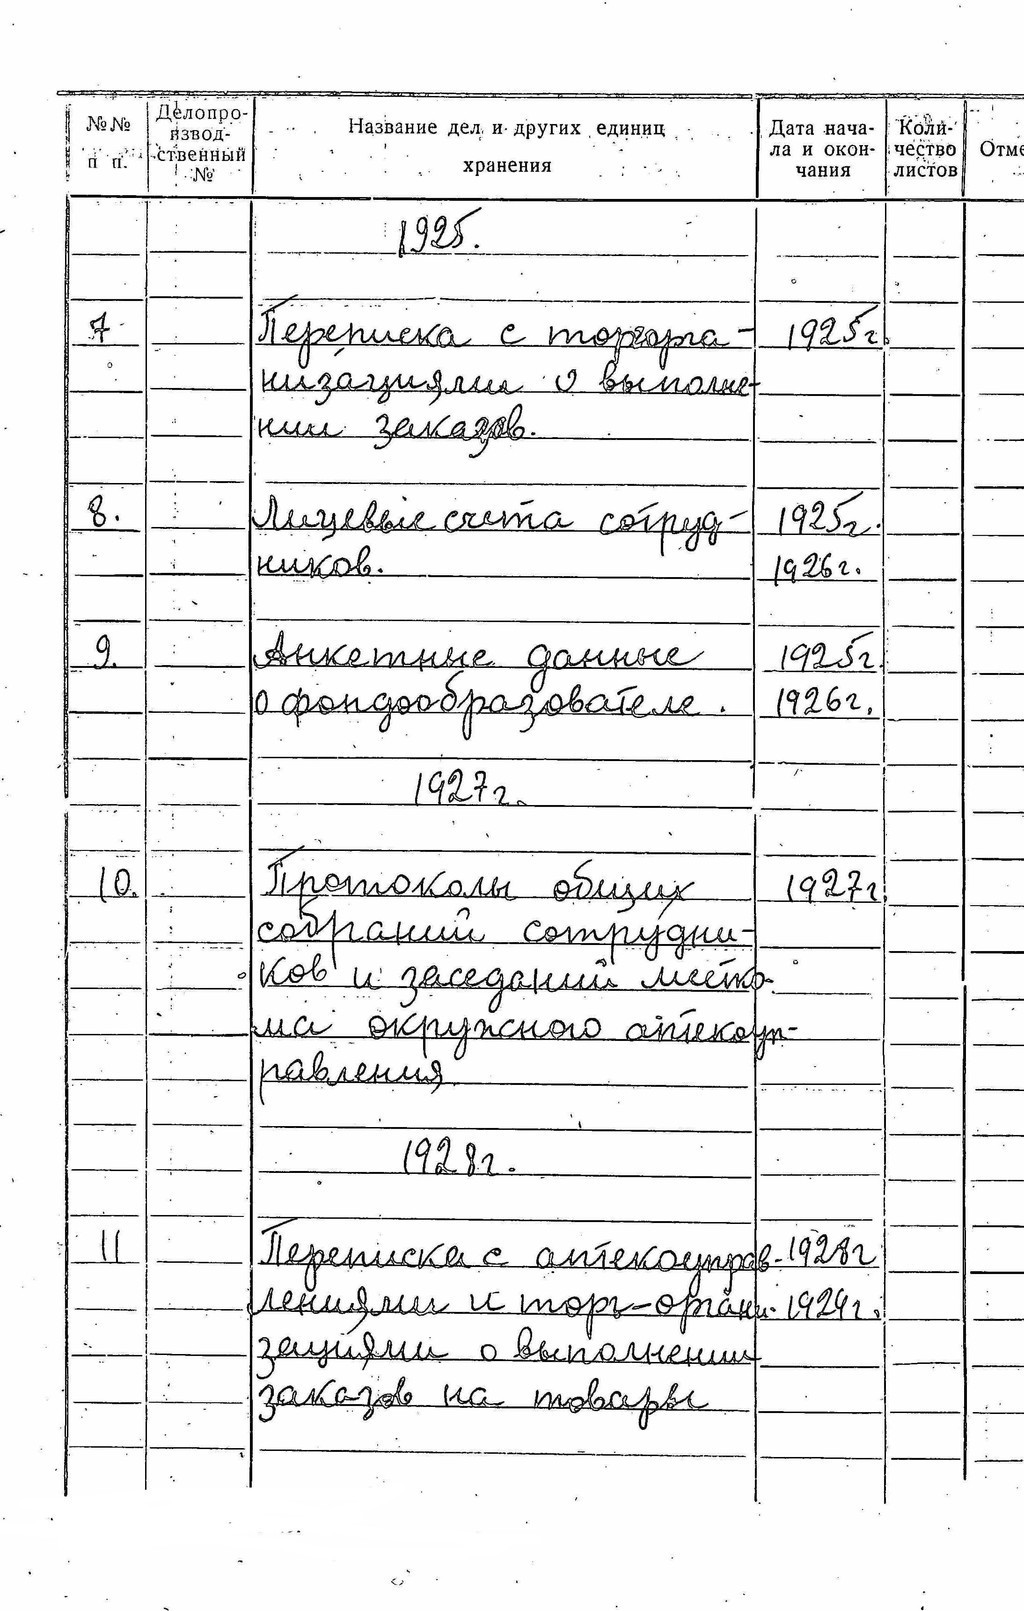 №№ п п.
Делопро-
извод-
ственный
№
Название дел и других единиц
хранения
Дата нача-
ла и окон-
чания
Коли-
чество
листов
Отме
1925.
7 Переписка с торгорга- 1925г.
низациями о выполне-
нии заказов.
8. Лицевые счета сотруд- 1925г.
ников. 1926г.
9. Анкетные данные 1925г.
о фондообразователе. 1926г.
1927г.
10. Протоколы общих 1927г
собраний сотрудни-
ков и заседаний местко-
ма окружного аптекоуп-
равления
1928г.
11 Переписка с аптекоуправ- 1928г
лениями и торг-органи- 1929г.
зациями о выполнении
заказов на товары